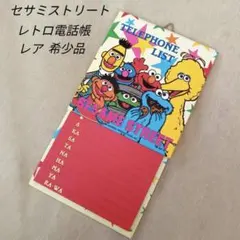 セサミストリート
レトロ電話帳
レア 希少品
TELEPHONE
LIST
SESAME STREET
A
KA
SA
TA
NA
HA
MA
YA
RA·WA